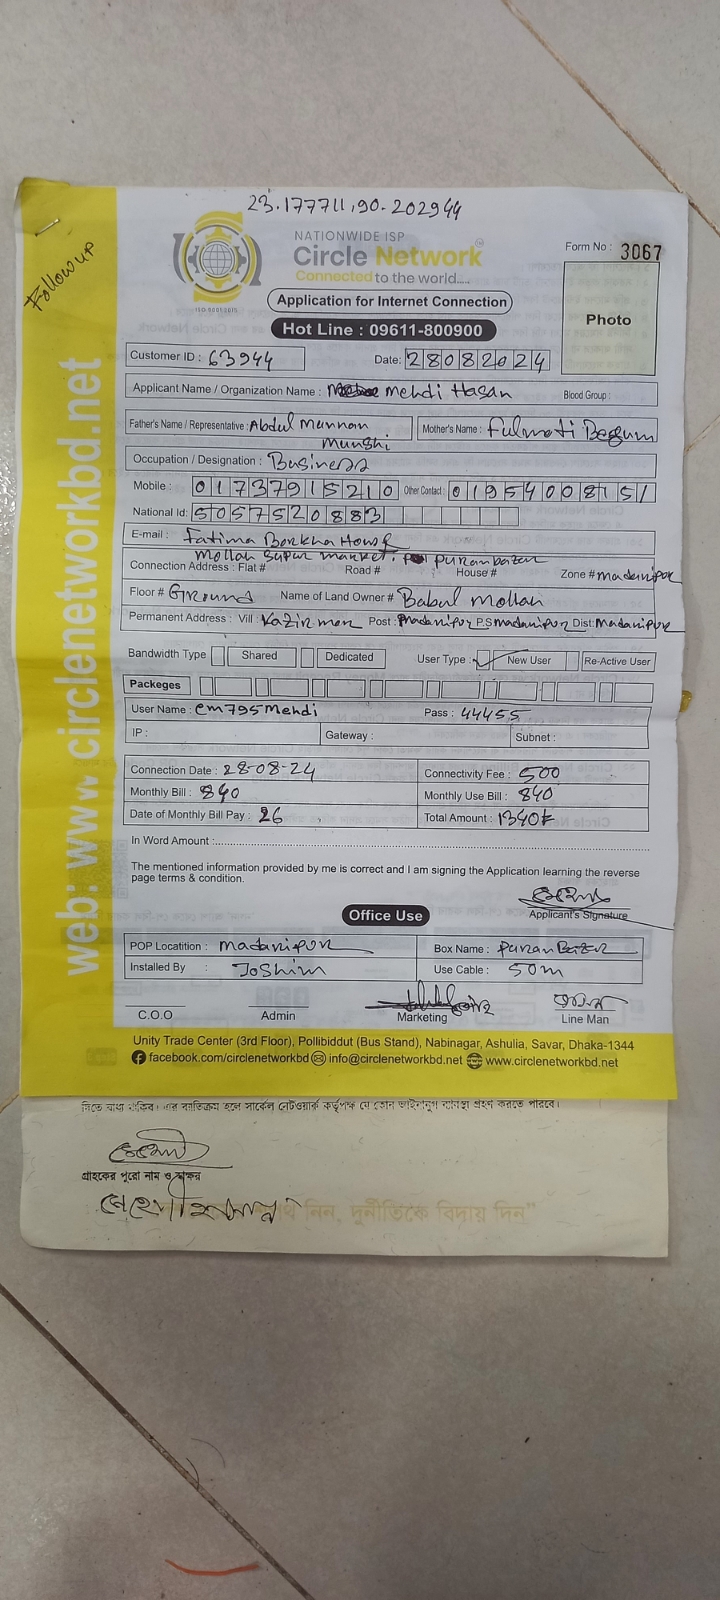 23.177711,90.202944
Follow up
NATIONWIDE ISP
Circle Network
Connected to the world.....
ISO 9001:2015
Form No : 3067
Photo
Application for Internet Connection
Hot Line : 09611-800900
Customer ID : 63944 Date: 28082024
Applicant Name / Organization Name : Mehdi Hasan Blood Group :
Father's Name / Representative : Abdul Mannan Munshi Mother's Name : Fulmoti Begum
Occupation / Designation : Business
Mobile : 01737915210 Other Contact : 01954008151
National Id: 5057520883
E-mail : Fatima Borkha House
Mollah Supar market. puranbazar
Connection Address : Flat # Road # House # Zone # madaripur
Floor # Ground Name of Land Owner # Babul Mollah
Permanent Address : Vill : Post : Madaripur P.S madaripur Dist: Madaripur
Bandwidth Type Shared Dedicated User Type : New User Re-Active User
Packeges
User Name : cm795mehdi Pass : 44455
IP : Gateway : Subnet :
Connection Date : 28-08-24 Connectivity Fee : 500
Monthly Bill : 840 Monthly Use Bill : 840
Date of Monthly Bill Pay : 26 Total Amount : 1340
In Word Amount :
The mentioned information provided by me is correct and I am signing the Application learning the reverse
page terms & condition.
Applicant's Signature
Office Use
POP Locatition : madaripur Box Name : Puran Bazar
Installed By : Joshim Use Cable : 50m
C.O.O Admin Marketing Line Man
Unity Trade Center (3rd Floor), Pollibiddut (Bus Stand), Nabinagar, Ashulia, Savar, Dhaka-1344
facebook.com/circlenetworkbd info@circlenetworkbd.net www.circlenetworkbd.net
web: www.circlenetworkbd.net
দিতে বাধ্য থাকিব। এর ব্যতিক্রম হলে সার্কেল নেটওয়ার্ক কর্তৃপক্ষ যে কোন আইনানুগ ব্যবস্থা গ্রহণ করতে পারবে।
গ্রাহকের পুরো নাম ও স্বাক্ষর
নিন, দুর্নীতিকে বিদায় দিন"